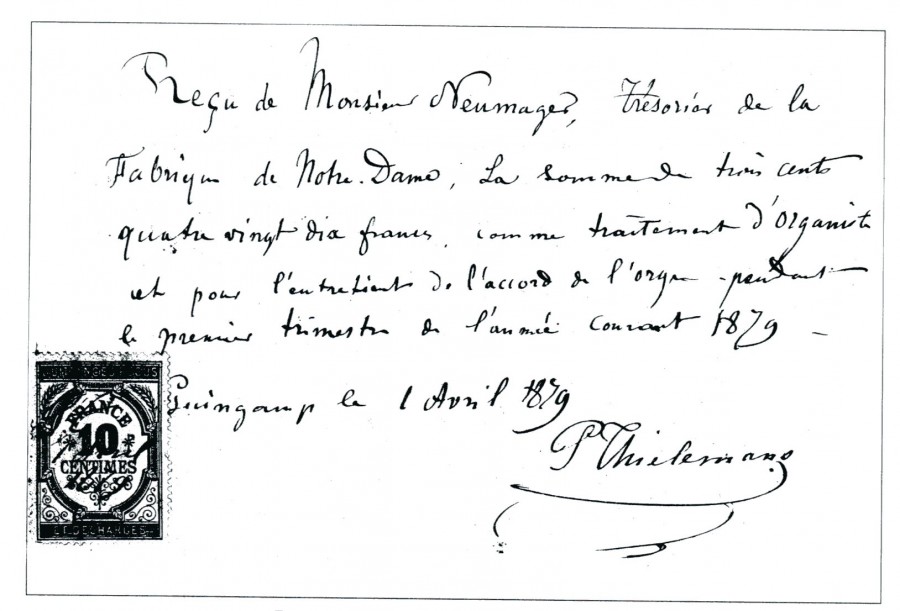 Reçu de Monsieur Neumager, Trésorier de la
Fabrique de Notre-Dame, La somme de trois cents
quatre vingt dix francs, comme traitement d'Organiste
et pour l'entretient de l'accord de l'orgue pendant
le premier trimestre de l'année courant 1879 –
Guingamp le 1 Avril 1879
P. Thielemans
FRANCE
10
CENTIMES
ET DECHARGES